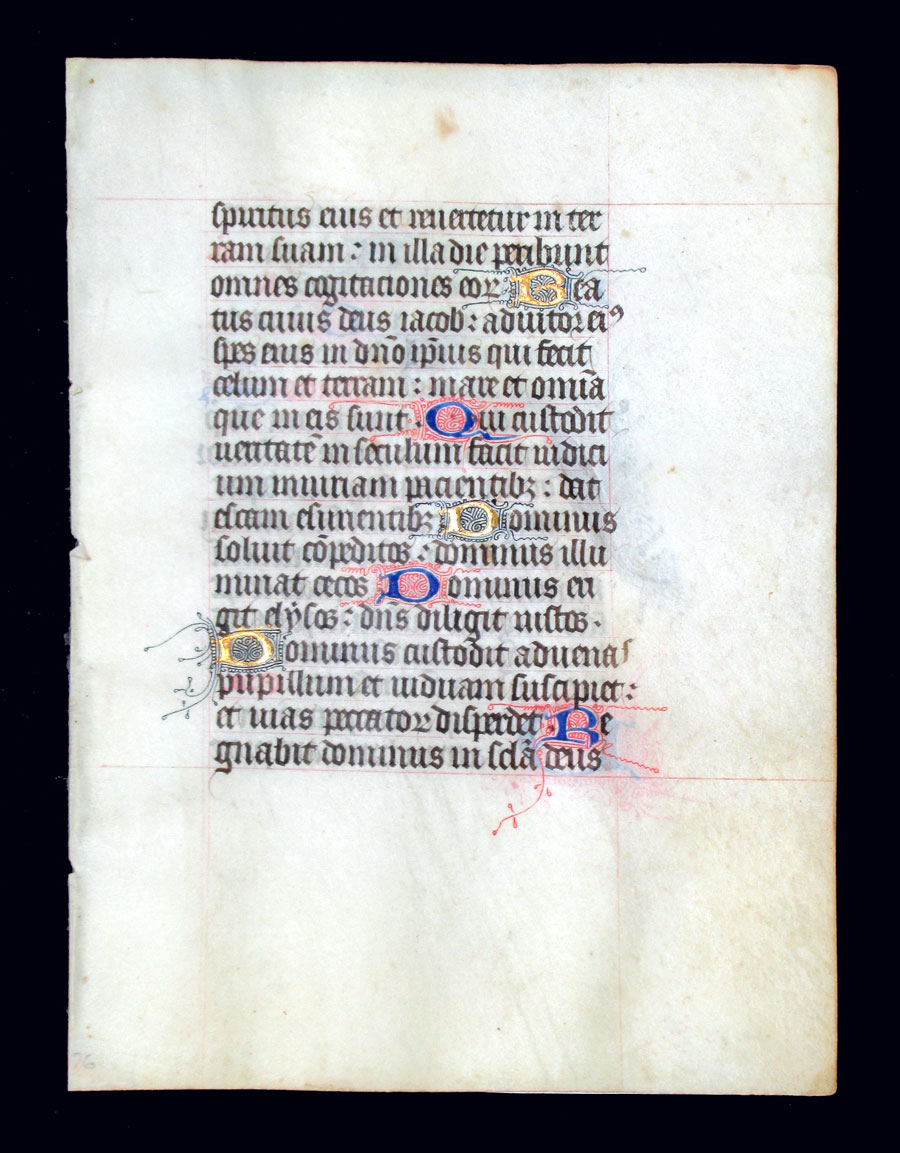 spiritus eius et reuertetur in ter
ram suam : in illa die peribunt
omnes cogitaciones eoꝝ Bea
tus cuius deus iacob : adiutor eiꝰ
spes eius in dn̄o ip̄ius qui fecit
celum et terram : mare et omīa
que in eis sunt . Qui custodit
ueritatē in seculum facit iudici
um iniuriam pacientibꝫ : dat
escam esurientibꝫ Dominus
soluit cōpeditos : dominus illu
minat cecos Dominus eri
git elysos : dn̄s diligit iustos .
Dominus custodit aduenas
pupillum et uiduam suscipiet :
et uias peccatoꝝ disperdet . Re
gnabit dominus in sc̄lā deus
76